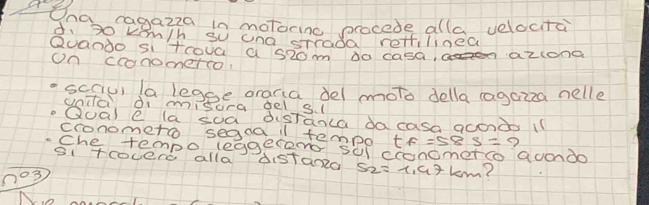 Una ragazza in motorino procede alla velocità
di 30 km/h su una strada rettilinea
Quando si trova a 520m da casa, aziona
un cronometro.
• scrivi la legge oraria del moto della ragazza nelle
unità di misura del S.I
• Qual è la sua distanza da casa quando il
cronometro segna il tempo tf = 58 s = ?
• Che tempo leggeremo sul cronometro quando
si troverà alla distanza s2 = 1,47 km?
n°3